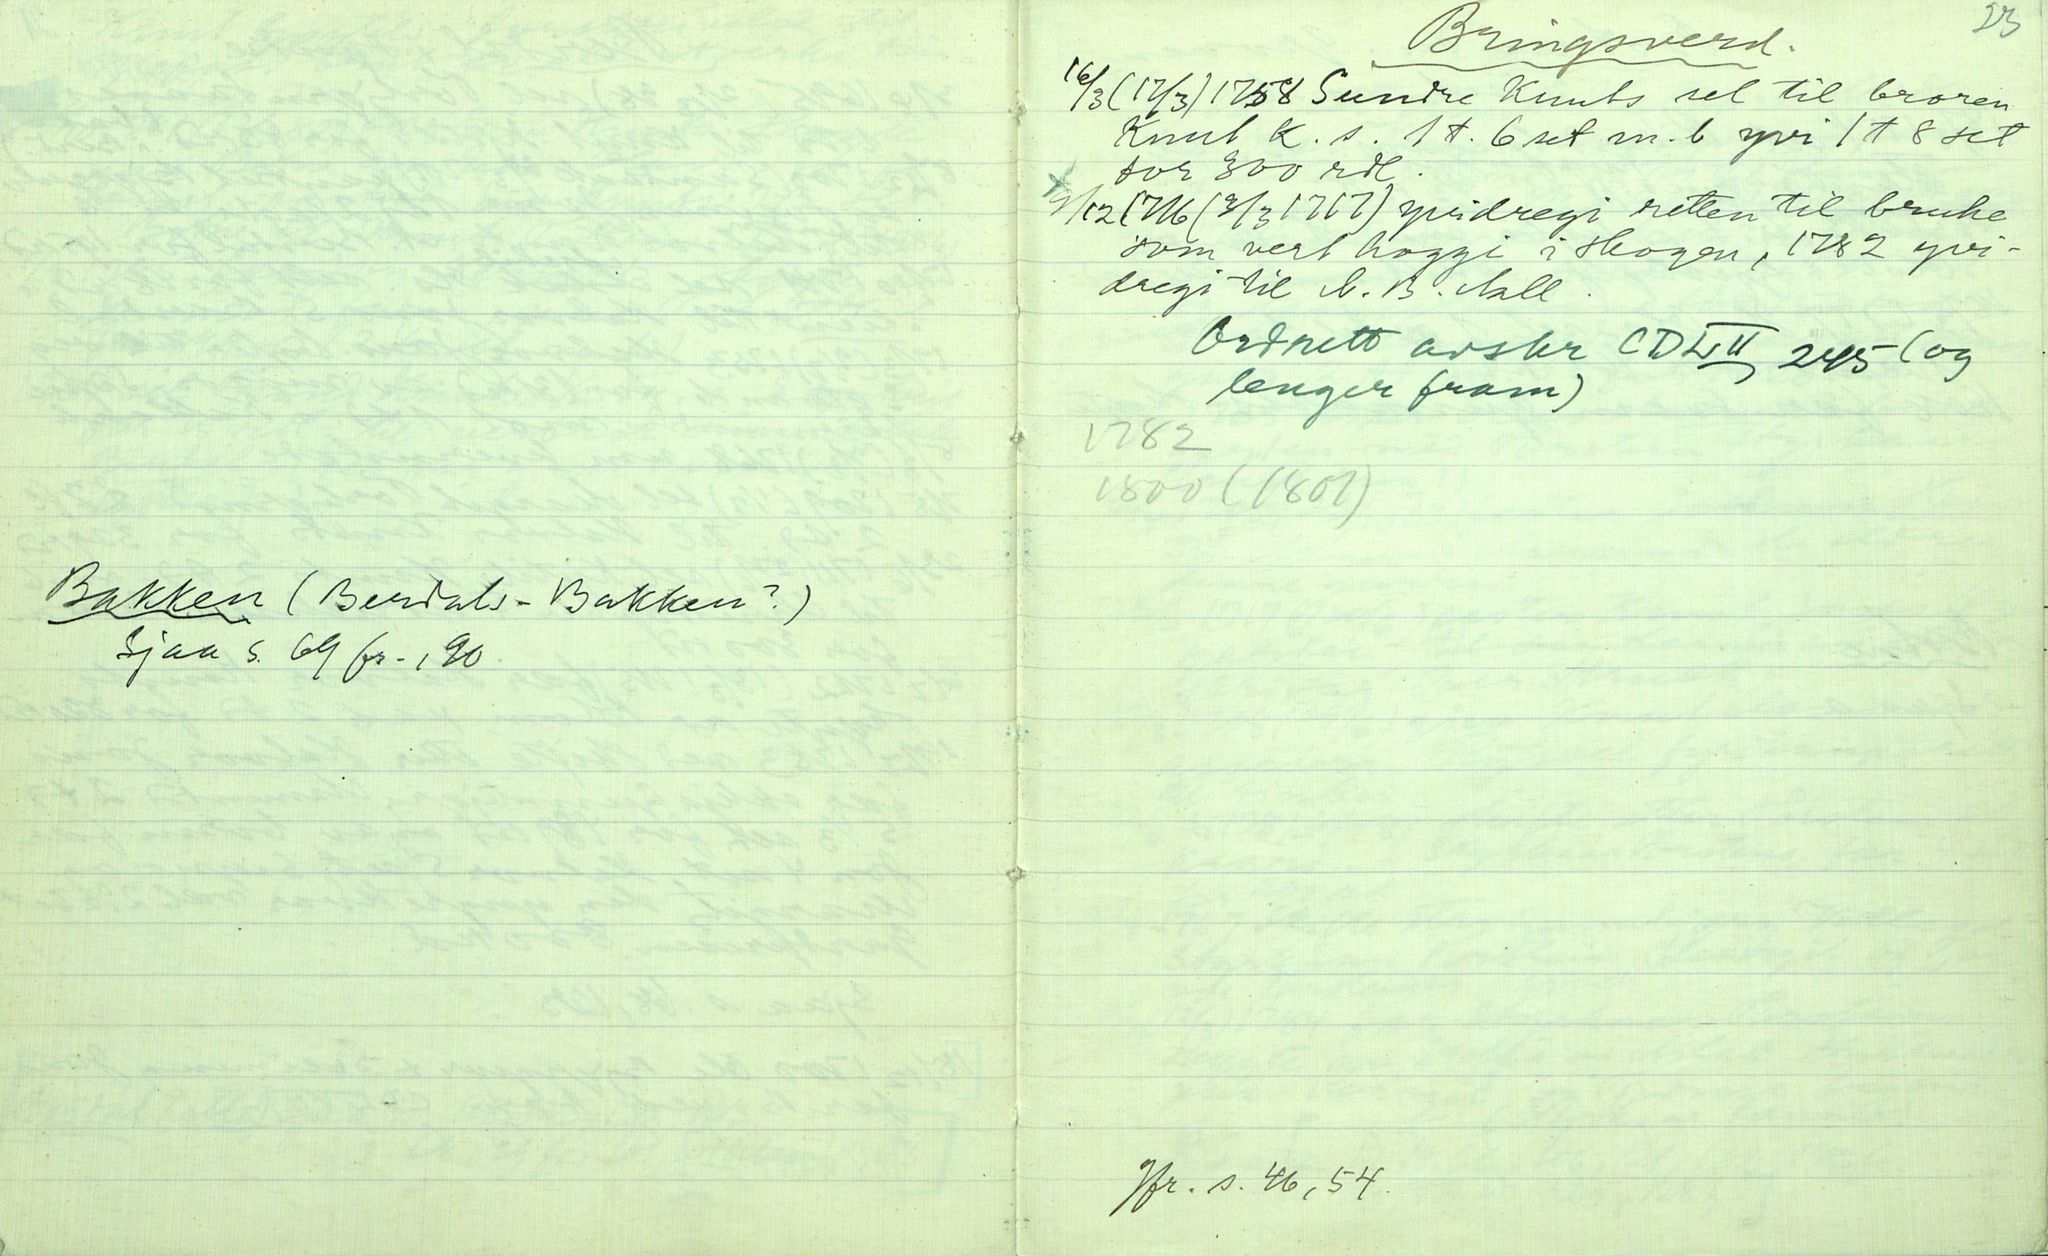 Bakken (Berdals-Bakken?)
Sjaa s. 69 fr., 90
23
Bringsverd.
16/3 (17/3) 1758 Sundre Knuts sel til broren
Knut K. s. 1 t. 6 set m. b yvi 1 t 8 set
for 300 rdl.
x
9/12 1716 (3/3 1717) yvidregi retten til bruke
som vert hoggi i skogen, 1782 yvi-
dregi til N. B. Aall.
Ordrett avskr CD II 245 (og
lenger fram)
1782
1800 (1801)
Jfr. s. 46, 54.